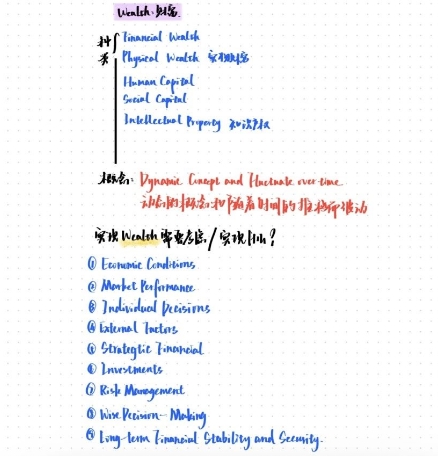 Wealth 财富
种类 Financial Wealth
Physical Wealth 实物财富
Human Capital
Social Capital
Intellectual Property 知识产权
概念: Dynamic Concept and Fluctuate over time
动态的概念和随着时间的推移而波动
实现 Wealth 需要考虑/实现
① Economic Conditions
② Market Performance
③ Individual Decisions
④ External Factors
⑤ Strategtic Financial
⑥ Investments
⑦ Risk Management
⑧ Wise Decision-Making
⑨ Long-term Financial Stability and Security.